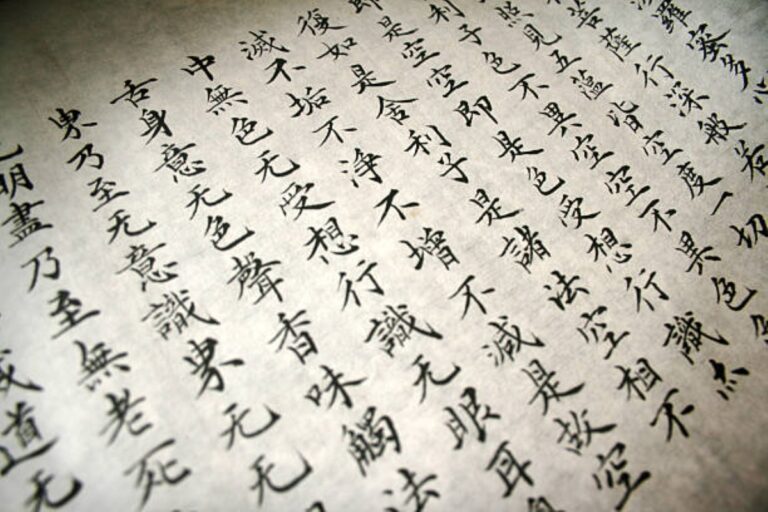 羅蜜多心
菩薩行深般若
照見五蘊皆空度一切
利子色不異空空不異色色
即是空空即是色受想行識亦
復如是舍利子是諸法空相不
滅不垢不淨不增不減是故空
中無色无受想行識无眼耳鼻
舌身意无色聲香味觸法
界乃至无意識界无无
明盡乃至無老死
道无